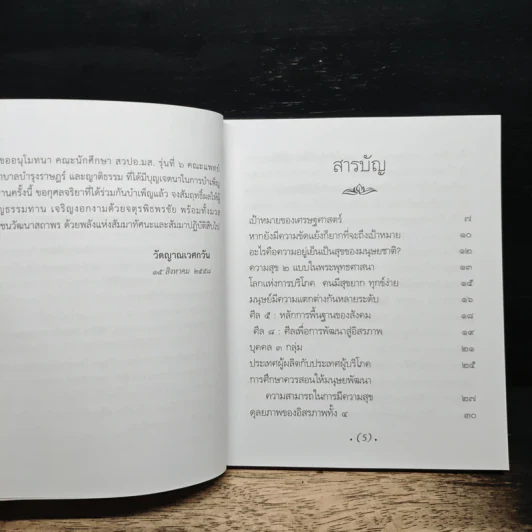 ขออนุโมทนา คณะนักศึกษา สวปอ.มส. รุ่นที่ ๖ คณะแพทย์
บาลบำรุงราษฎร์ และญาติธรรม ที่ได้มีบุญเจตนาในการบำเพ็ญ
านครั้งนี้ ขอกุศลจริยาที่ได้ร่วมกันบำเพ็ญแล้ว จงสัมฤทธิ์ผลให้ผู้
ญธรรมทาน เจริญงอกงามด้วยจตุรพิธพรชัย พร้อมทั้งมวล
ชนวัฒนาสถาพร ด้วยพลังแห่งสัมมาทัศนะและสัมมาปฏิบัติสืบไป
วัดญาณเวศกวัน
๑๕ สิงหาคม ๒๕๕๘
สารบัญ
เป้าหมายของเศรษฐศาสตร์ ๗
หากยังมีความขัดแย้งก็ยากที่จะถึงเป้าหมาย ๑๐
อะไรคือความอยู่เย็นเป็นสุขของมนุษยชาติ? ๑๒
ความสุข ๒ แบบในพระพุทธศาสนา ๑๓
โลกแห่งการบริโภค คนมีสุขยาก ทุกข์ง่าย ๑๕
มนุษย์มีความแตกต่างกันหลายระดับ ๑๖
ศีล ๕ : หลักการพื้นฐานของสังคม ๑๘
ศีล ๘ : ศีลเพื่อการพัฒนาสู่อิสรภาพ ๑๙
บุคคล ๓ กลุ่ม ๒๑
ประเทศผู้ผลิตกับประเทศผู้บริโภค ๒๕
การศึกษาควรสอนให้มนุษยพัฒนา
ความสามารถในการมีความสุข ๒๗
ดุลยภาพของอิสรภาพทั้ง ๔ ๓๐
. (5) .